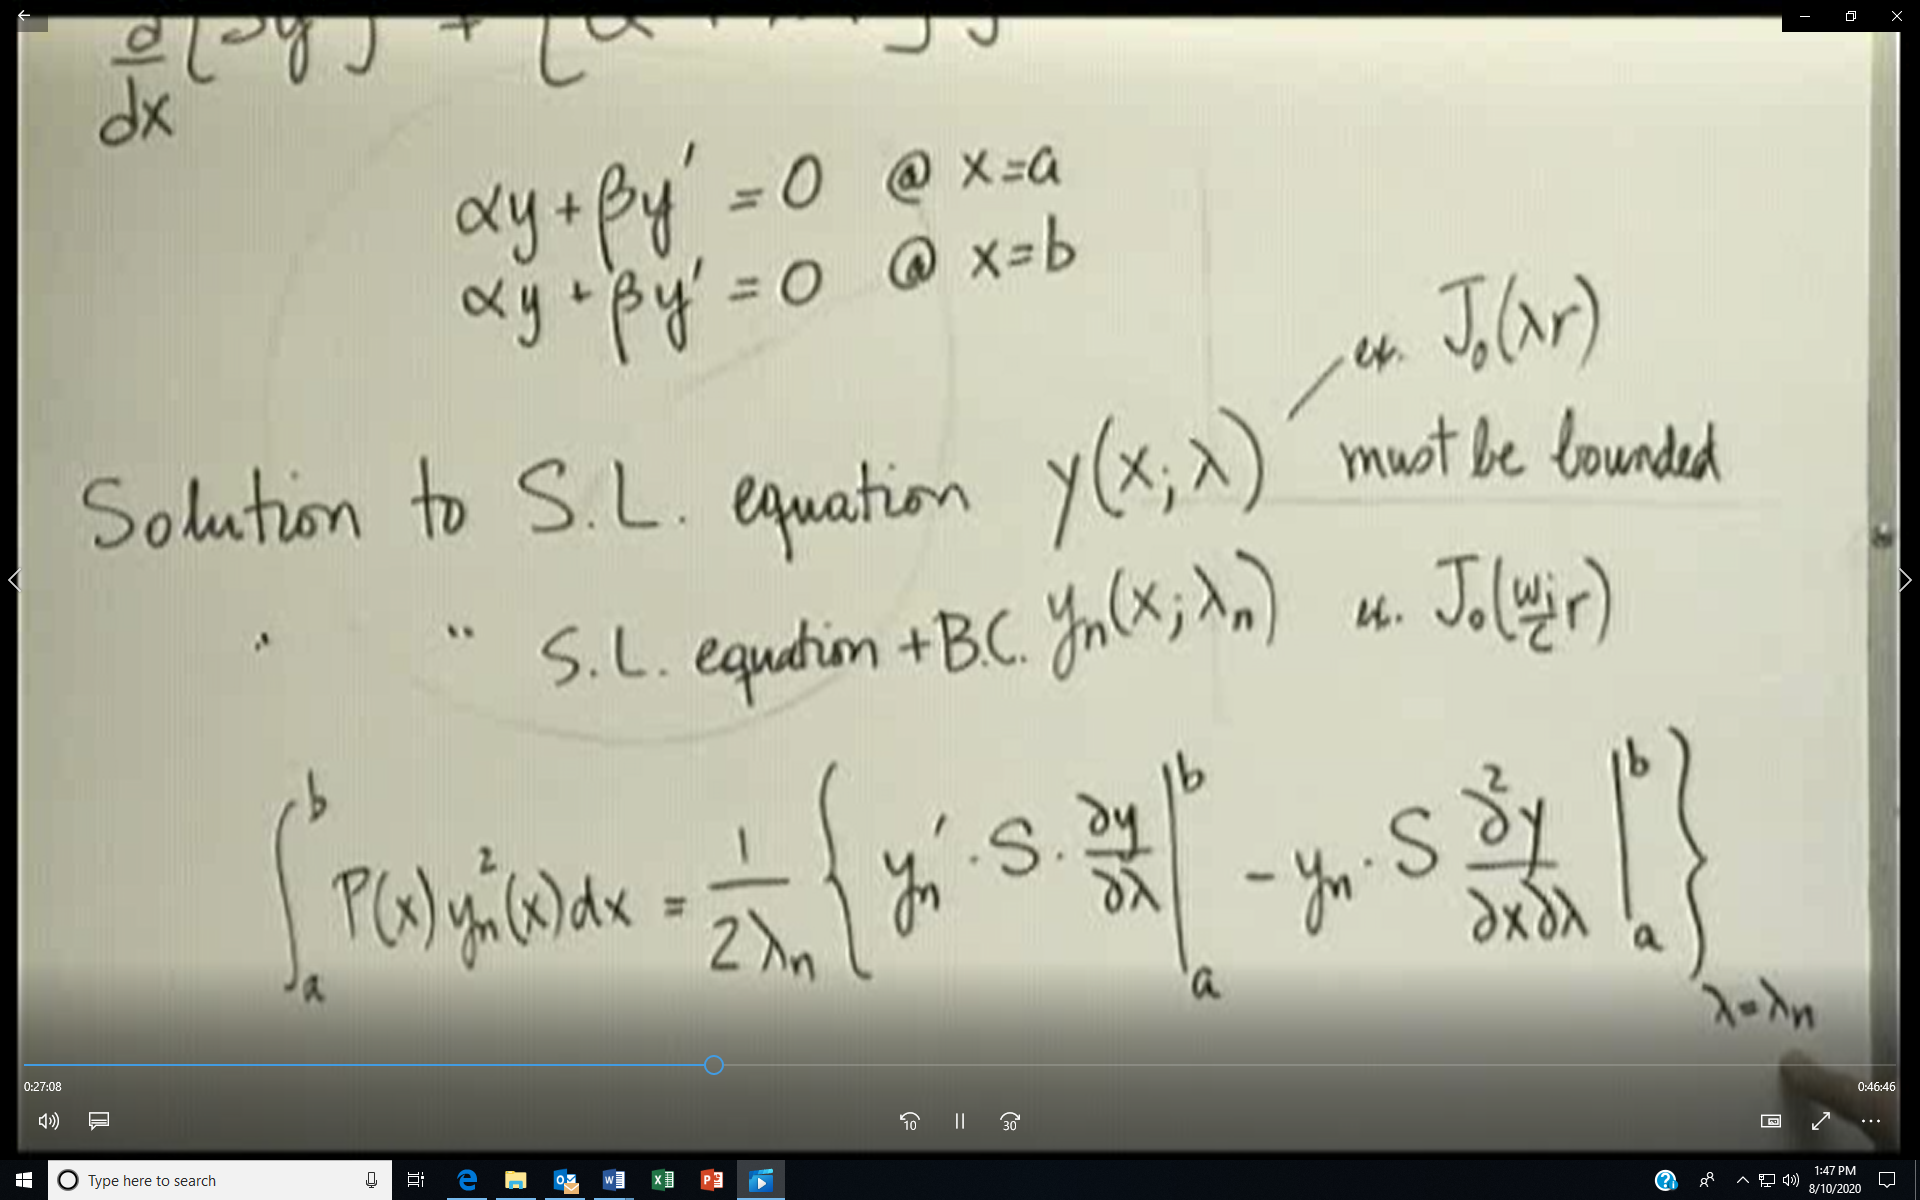 d/dx [Sy'] + [
αy + βy' = 0 @ x=a
αy + βy' = 0 @ x=b
ex. J₀(λr)
Solution to S.L. equation y(x;λ) must be bounded
" " S.L. equation + B.C. yₙ(x;λₙ) ex. J₀(ωᵢ/c r)
∫ₐᵇ P(x) yₙ²(x) dx = 1/2λₙ { yₙ' · S · ∂y/∂λ |ₐᵇ - yₙ · S ∂²y/∂x∂λ |ₐᵇ } λ=λₙ
0:27:08
0:46:46
10
30
Type here to search
1:47 PM
8/10/2020